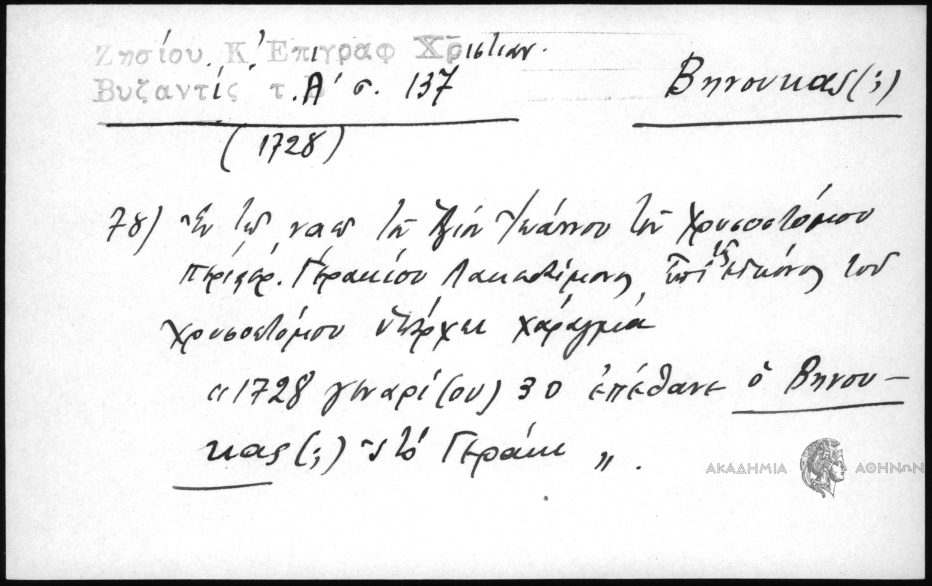 Ζησίου Κ. Ἐπιγραφ Χριστιαν.
Βηνουκας (;)
Βυζαντίς τ. Α' σ. 137
(1728)
78) Ἐν τῷ ναῷ τοῦ Ἁγίου Ἰωάννου τοῦ Χρυσοστόμου
περιχωρ. Γερακίου Λακεδαίμονος ἐπὶ τῆς εἰκόνος τοῦ
Χρυσοστόμου ὑπάρχει χάραγμα
«1728 γεναρί(ου) 30 ἐπέθανε ὁ Βηνου-
κας (;) στὸ Γεράκι».
ΑΚΑΔΗΜΙΑ ΑΘΗΝΩΝ